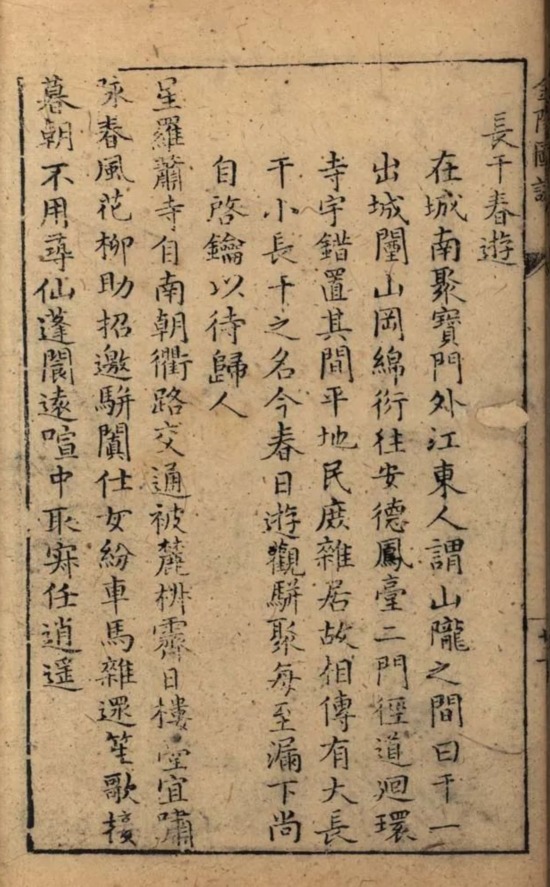 金陵圖詠
長干春遊
在城南聚寶門外江東人謂山隴之間曰干一
出城闉山岡綿衍往安德鳳臺二門徑道迴環
寺宇錯置其間平地民庶雜居故相傳有大長
干小長干之名今春日遊觀駢聚每至漏下尚
自啓鑰以待歸人
星羅蕭寺自南朝衢路交通被麓椒霽日樓臺宜嘯
咏春風花柳助招邀駢闐仕女紛車馬雜遝笙歌接
暮朝不用尋仙蓬閬遠喧中取寂任逍遥